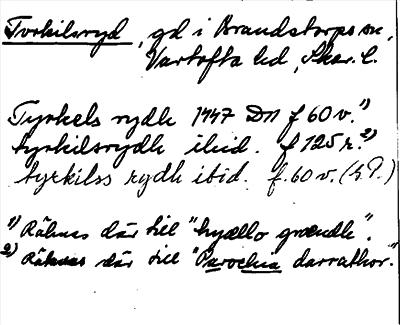 Torkilsryd, gd i Brandstorps sn,
Vartofta hd, Skar. l.
Tyrkels rydh 1447 Dn f 60 v.¹⁾
tyrkilsrydh ibid. f 125 r.²⁾
tyrkilss rydh ibid. f. 60 v. (h.?)
1) Räknas där till "hyællo grændh".
2) Räknas där till "Parochia darrathor."